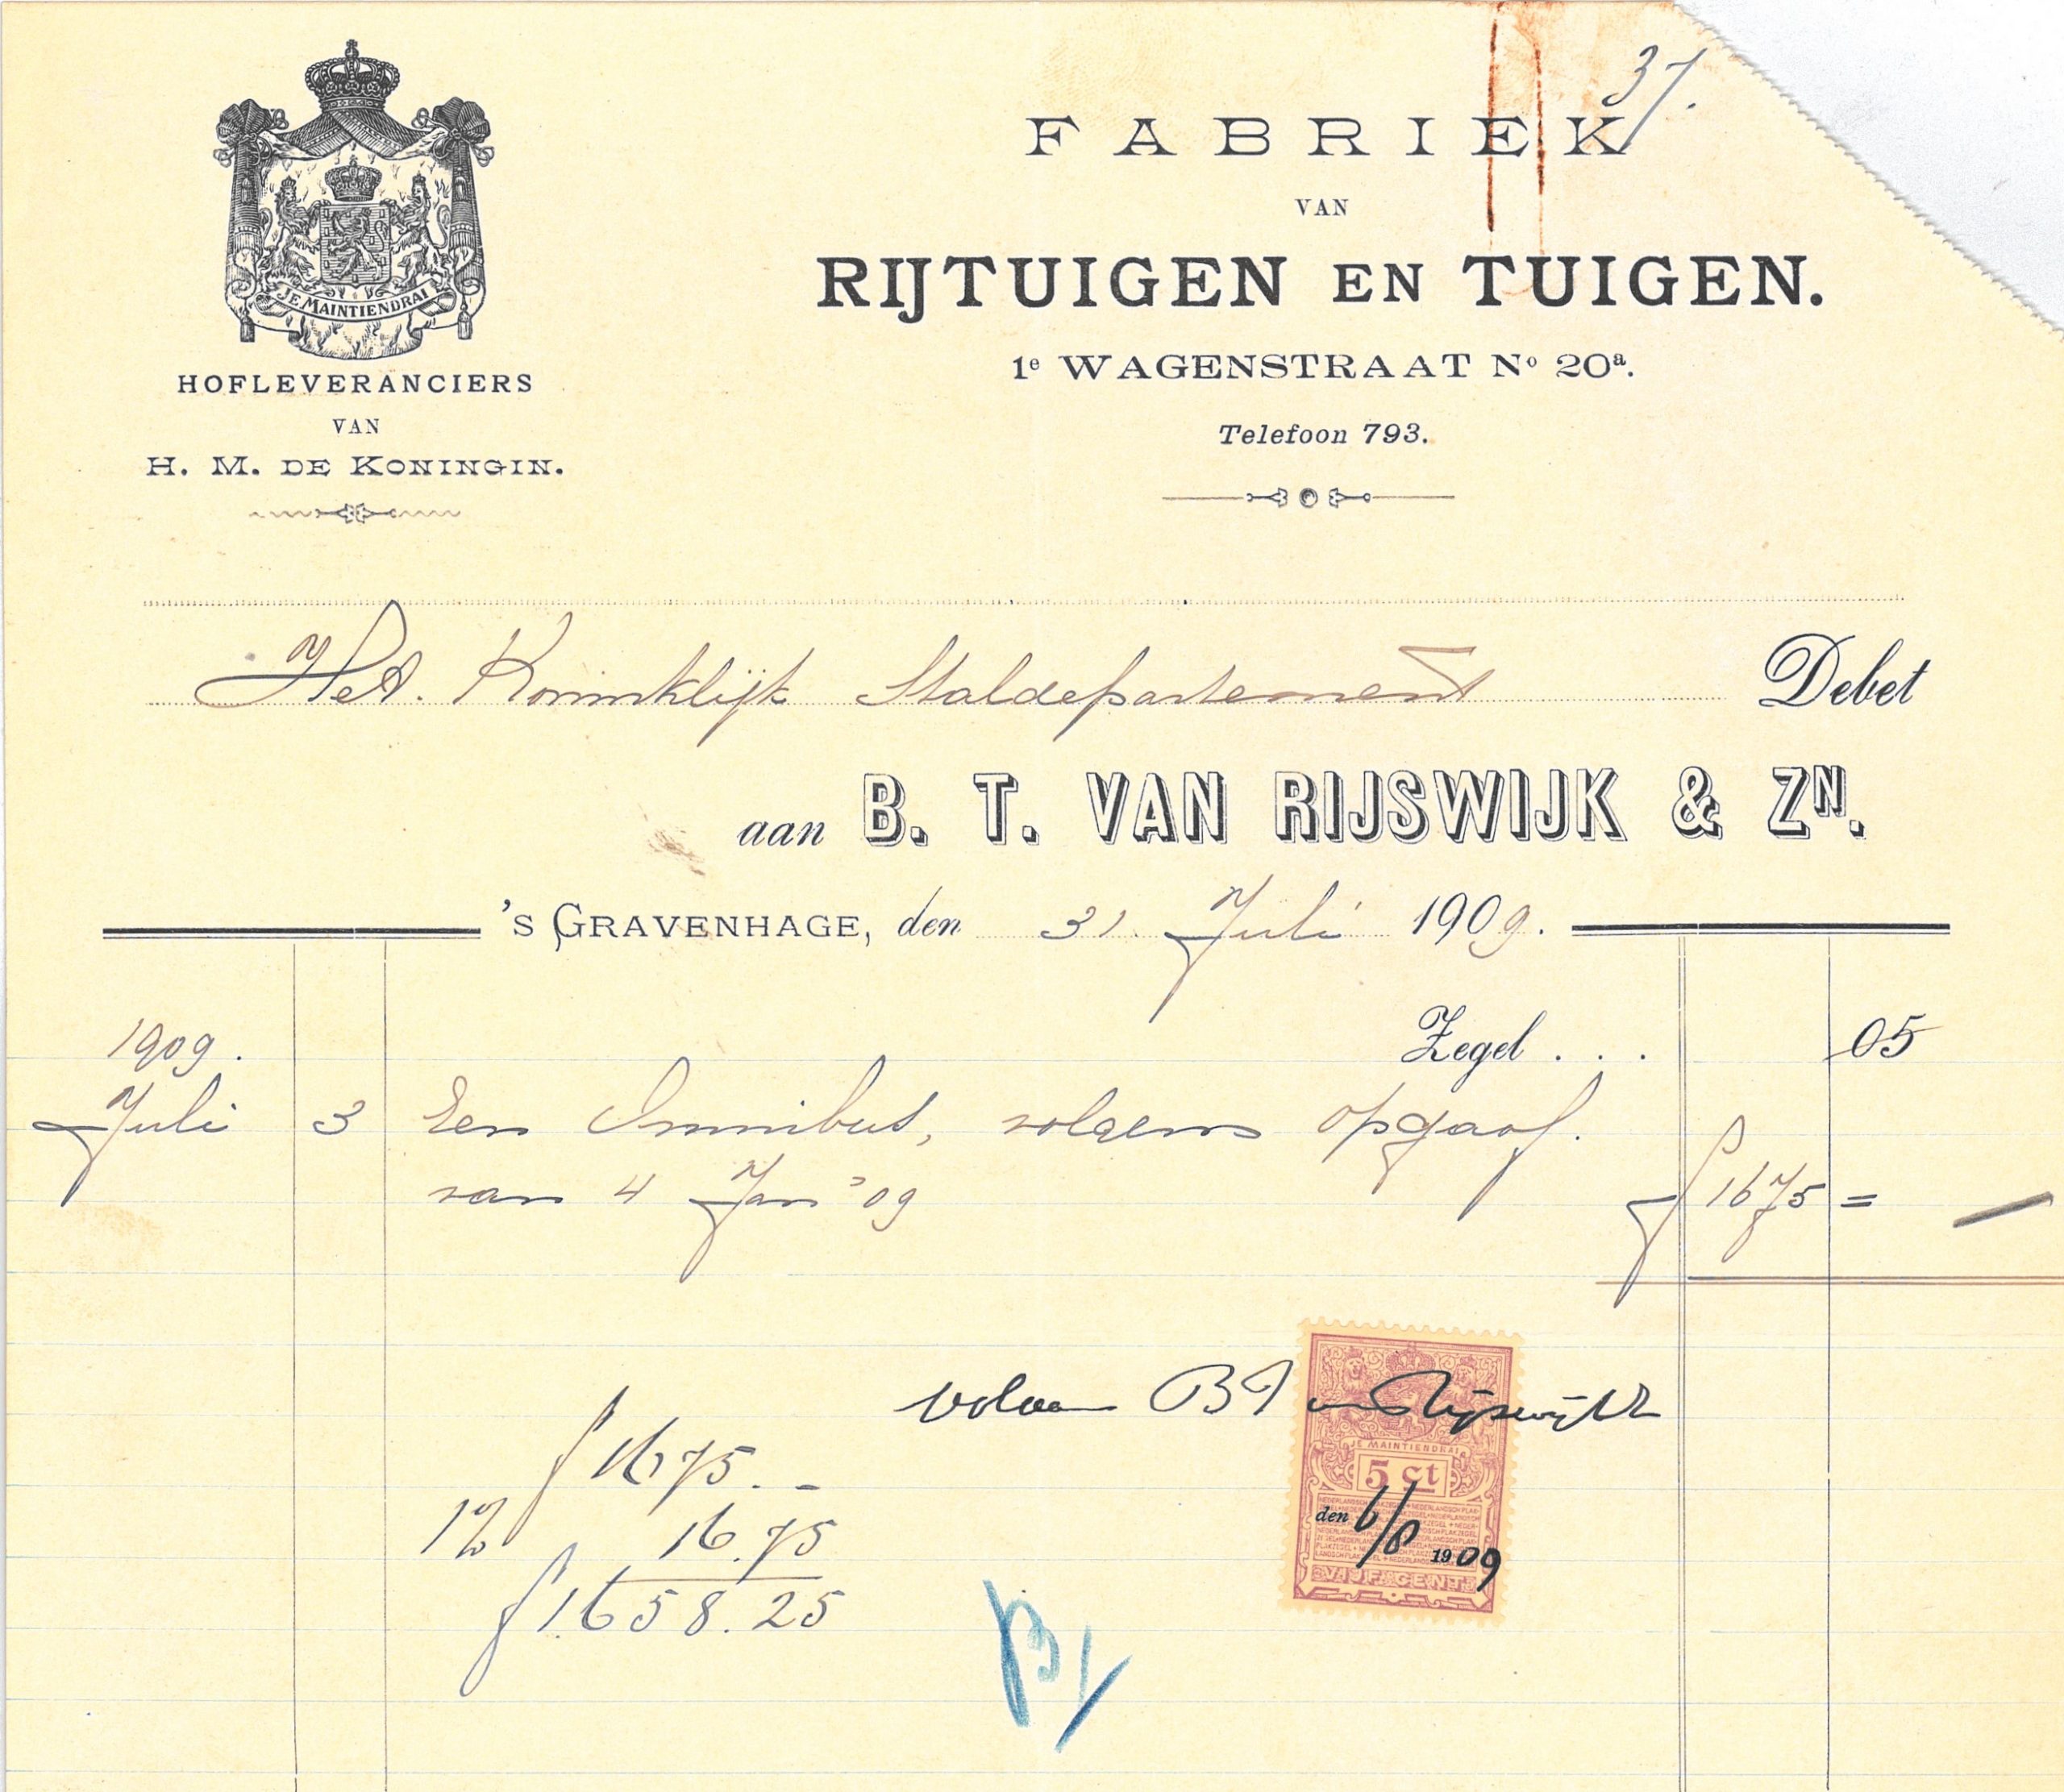 37.
JE MAINTIENDRAI
HOFLEVERANCIERS
VAN
H. M. DE KONINGIN.
FABRIEK
VAN
RIJTUIGEN EN TUIGEN.
1e WAGENSTRAAT No 20a.
Telefoon 793.
Het Koninklijk Staldepartement Debet
aan B. T. VAN RIJSWIJK & ZN.
'S GRAVENHAGE, den 31 Juli 1909.
1909. Zegel . . . 05
Juli 3 Een Omnibus, volgens opgaaf.
van 4 Jan '09 f 1675 =
voldaan B T van Rijswijk
f 1675. -
1% 16.75
f 1658.25
JE MAINTIENDRAI
5 ct
den 6/8 1909
VIJF CENT